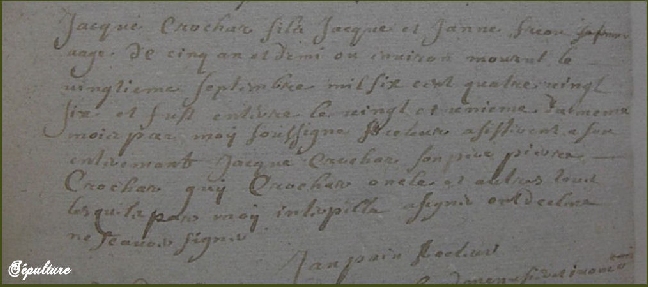 Jacque Crochar fils a Jacque et Janne
aage de cinq an et demi ou environ mourut le
vingtieme septembre mil six cent quatre vingt
six et fust enterre le vingt et unieme du mesme
mois par moy soussigne Recteur asistirent a son
enterremant Jacque Crochar son pere pierre
Crochar guy Crochar oncle et autres tous
lesquels par moy interpelle a signe ont declare
ne scavoir signe
Jan Recteur
Sépulture